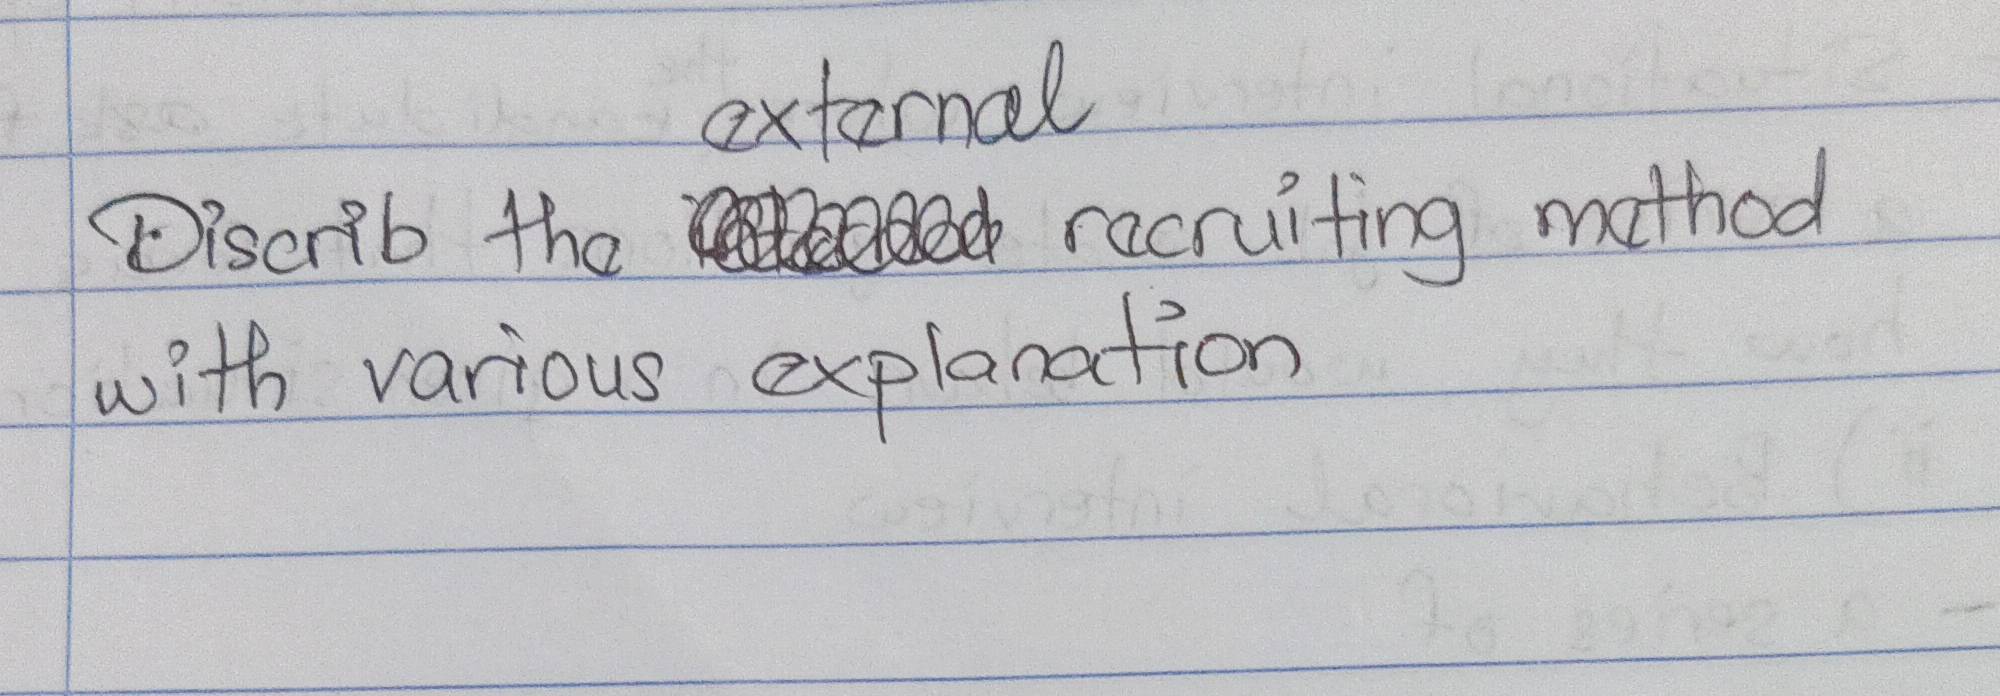 external
Discrib the recruiting method
with various explanation